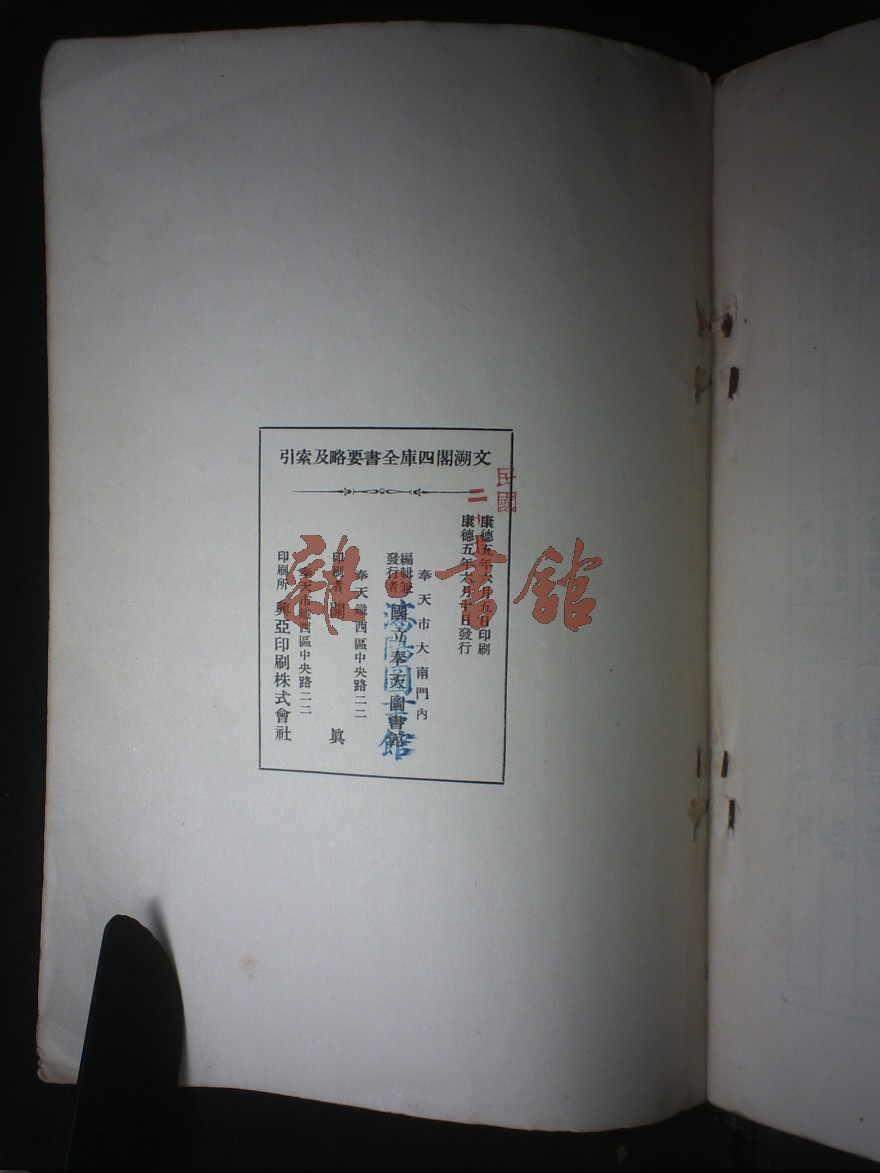 文溯閣四庫全書要略及索引
民國
二十七
康德五年六月五日印刷
康德五年六月十日發行
奉天市大南門內
編輯兼
發行者
國立奉天圖書館
瀋陽圖書館
奉天鐵西區中央路二二
印刷者 關 眞
奉天市鐵西區中央路二二
印刷所 興亞印刷株式會社
雜·書館